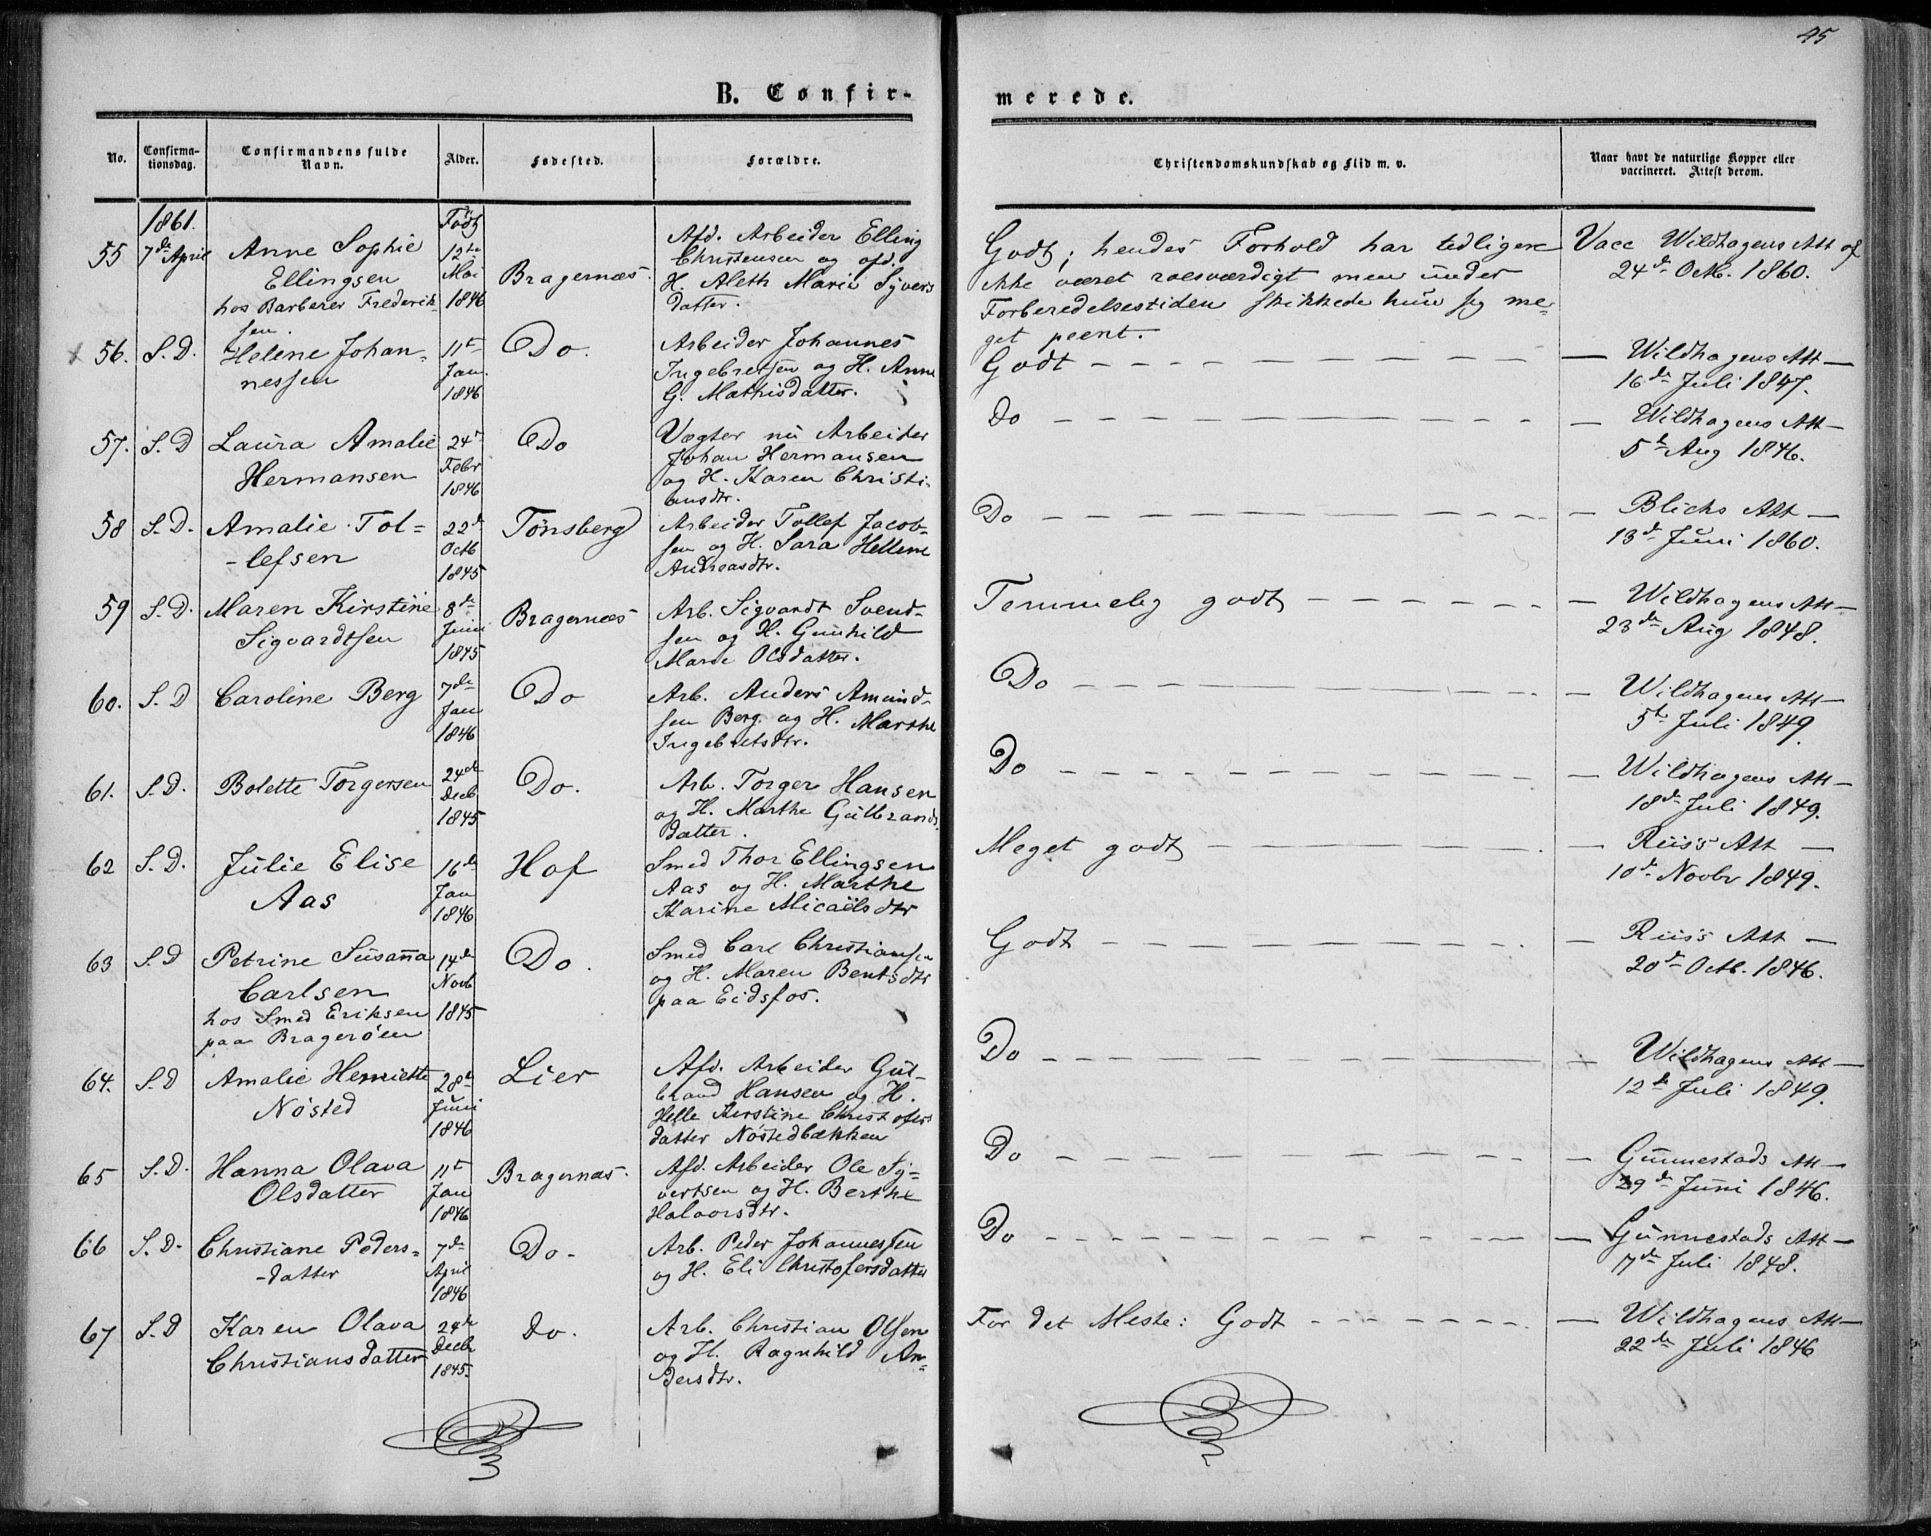 45
B. Confir-
merede.
No.
Confirma-
tionsdag.
Confirmandens fulde
Navn.
Alder.
Fødested.
Forældre.
Christendomskundskab og Flid m. v.
Naar havt de naturlige Kopper eller
vaccineret. Attest derom.
1861.
55
7de April
Anne Sophie
Ellingsen
hos Barberer Frederik-
sen.
Født
12te
Mai
1846
Bragernæs.
Afd. Arbeider Elling
Christensen og afd.
H. Aleth Marie Syvers
datter.
Godt; hendes Forhold har tidligere
ikke været roesværdigt men under
Forberedelsestiden skikkede hun sig me-
get peent.
Vacc Wildhagens Att af
24de Octb. 1860.
56.
S.D.
Helene Johan-
nessen
11te
Jan.
1846
Do.
Arbeider Johannes
Ingebretsen og H. Anne
G. Mathisdatter.
Godt
Wildhagens Att
16de Juli 1847.
57.
S.D
Laura Amalie
Hermansen
24de
Febr
1846
Do
Vægter nu Arbeider
Johan Hermansen
og H. Karen Christi-
ansdtr.
Do
Wildhagens Att
5te Aug 1846.
58
S.D.
Amalie Tol-
-lefsen
22de
Octb
1845
Tønsberg
Arbeider Tollef Jacob-
sen og H. Sara Hellene
Andreasdtr.
Do
Blichs Att
13de Juni 1860.
59
S.D.
Maren Kirstine
Sigvardtsen
8de
Juni
1845
Bragernæs
Arb. Sigvardt Svend-
sen og H. Gunhild
Marie Olsdatter.
Temmelig godt
Wildhagens Att
23de Aug 1848.
60.
S.D
Caroline Berg
7de
Jan
1846
Do
Arb. Anders Amund-
sen Berg og H. Marthe
Ingebretsdtr.
Do
Wildhagens Att
5te Juli 1849.
61.
S.D.
Bolette Torgersen
24de
Decb
1845
Do.
Arb. Torger Hansen
og H. Marthe Gulbrands
datter.
Do
Wildhagens Att
18de Juli 1849.
62
S.D.
Julie Elise
Aas
16de
Jan
1846
Hof
Smed Thor Ellingsen
Aas og H. Marthe
Karine Micaëlsdtr
Meget godt
Riis's Att
10de Novbr 1849.
63
S.D
Petrine Susanna
Carlsen
hos Smed Eriksen
paa Bragerøen
14de
Novb
1845
Do.
Smed Carl Christiansen
og H. Maren Bentsdtr
paa Eidsfos.
Godt
Riis's Att
20de Octb. 1846.
64.
S.D
Amalie Henriette
Nøsted
28de
Juni
1846
Lier
Afd. Arbeider Gul-
brand Hansen og H.
Helle Kirstine Christofers
datter Nøstedbækken
Do
Wildhagens Att
12de Juli 1849.
65
S.D.
Hanna Olava
Olsdatter
11te
Jan
1846
Bragernæs.
Afd. Arbeider Ole Sy-
vertsen og H. Berthe
Halvorsdtr.
Do
Gunnestads Att
29de Juni 1846.
66
S.D.
Christiane Peders-
-datter
7de
April
1846
Do.
Arb. Peder Johannessen
og H. Eli Christofersdatter
Do
Gunnestads Att
17de Juli 1848.
67
S.D
Karen Olava
Christiansdatter
24de
Decbr
1845.
Do.
Arb. Christian Olsen
og H. Ragnhild An-
dersdtr.
For det Meste: Godt
Wildhagens Att
22de Juli 1846